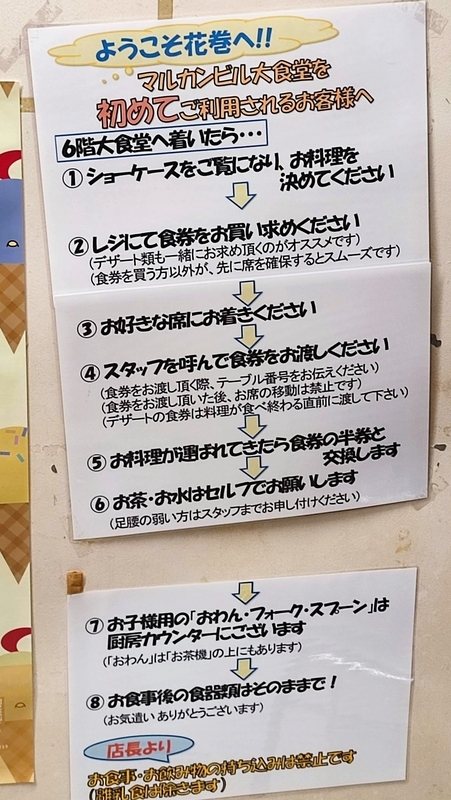 ようこそ花巻へ!!
マルカンビル大食堂を
初めてご利用されるお客様へ
6階大食堂へ着いたら・・・
① ショーケースをご覧になり、お料理を
決めてください
② レジにて食券をお買い求めください
(デザート類も一緒にお求め頂くのがオススメです)
(食券を買う方以外が、先に席を確保するとスムーズです)
③ お好きな席にお着きください
④ スタッフを呼んで食券をお渡しください
(食券をお渡し頂く際、テーブル番号をお伝えください)
(食券をお渡し頂いた後、お席の移動は禁止です)
(デザートの食券は料理が食べ終わる直前に渡して下さい)
⑤ お料理が運ばれてきたら食券の半券と
交換します
⑥ お茶・お水はセルフでお願いします
(足腰の弱い方はスタッフまでお申し付けください)
⑦ お子様用の「おわん・フォーク・スプーン」は
厨房カウンターにございます
(「おわん」は「お茶機」の上にもあります)
⑧ お食事後の食器類はそのままで!
(お気遣い ありがとうございます)
店長より
お食事・お飲み物の持ち込みは禁止です
(離乳食は除きます)